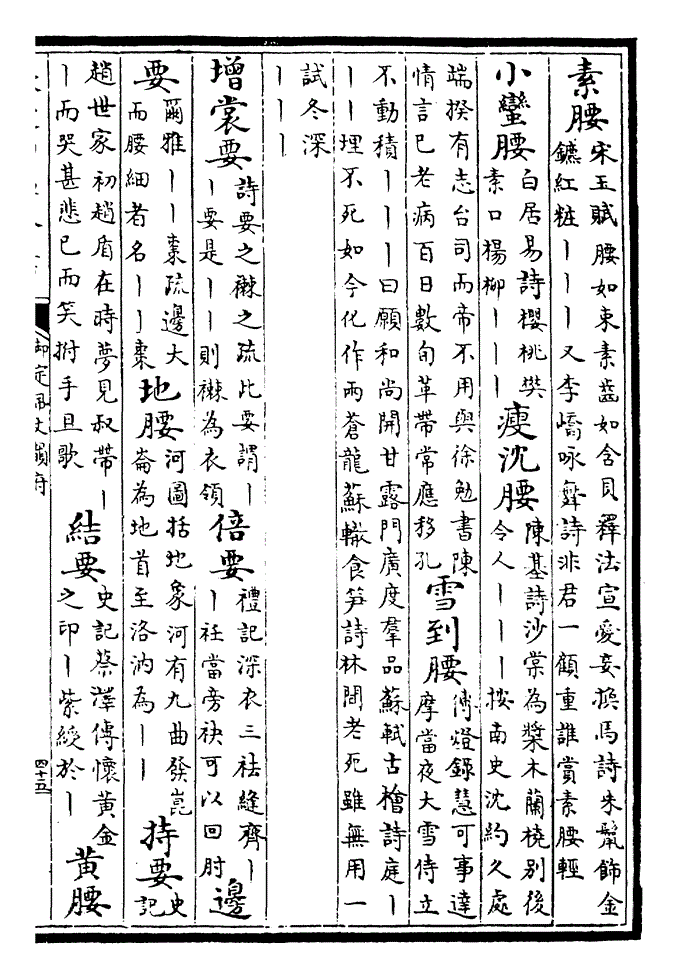 素腰 宋玉賦腰如束素齒如含貝釋法宣愛妾換馬詩朱鬛飾金鑣紅粧丨丨丨又李嶠咏舞詩非君一顧重誰賞素腰輕
小蠻腰 白居易詩櫻桃樊素口楊柳丨丨丨 瘦沈腰 陳基詩沙棠為槳木蘭橈别後令人丨丨丨按南史沈約久處
端揆有志台司而帝不用與徐勉書陳情言已老病百日數旬革帶常應移孔 雪到腰 傳燈錄慧可事達摩當夜大雪侍立
不動積丨丨丨曰願和尚開甘露門廣度羣品蘇軾古檜詩庭丨丨丨埋不死如今化作兩蒼龍蘇轍食笋詩林間老死雖無用一
試冬深丨丨丨
增裳要 詩要之襋之疏此要謂丨丨要是丨丨則襋為衣領 倍要 禮記深衣三袪縫齊丨丨衽當旁袂可以回肘 邊
要 爾雅丨丨棗疏邊大而腰細者名丨丨棗 地腰 河圖括地象河有九曲發崑崙為地首至洛汭為丨丨 持要 史記
趙世家初趙盾在時夢見叔帶丨丨而哭甚悲已而笑拊手且歌 結要 史記蔡澤傳懷黄金之印丨紫綬於丨 黄腰
御定佩文韻府
四十五